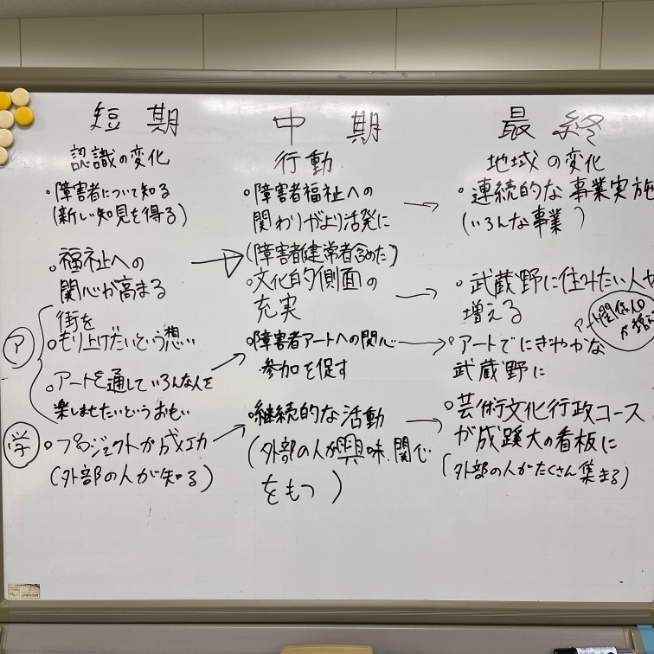 短期
認識の変化
・障害者について知る
(新しい知見を得る)
・福祉への
関心が高まる
ア
街を
・もり上げたいという想い
・アートを通していろんな人を
楽しませたいというおもい
学
・プロジェクトが成功
(外部の人が知る)
中期
行動
・障害者福祉への
関わりがより活発に
(障害者健常者含めた)
・文化的側面の
充実
・障害者アートへの関心
参加を促す
・継続的な活動
(外部の人が興味、関心
をもつ)
最終
地域の変化
・連続的な事業実施
(いろんな事業)
・武蔵野に住みたい人が
増える
・アートでにぎやかな
武蔵野に
・芸術文化行政コース
が成蹊大の看板に
(外部の人がたくさん集まる)